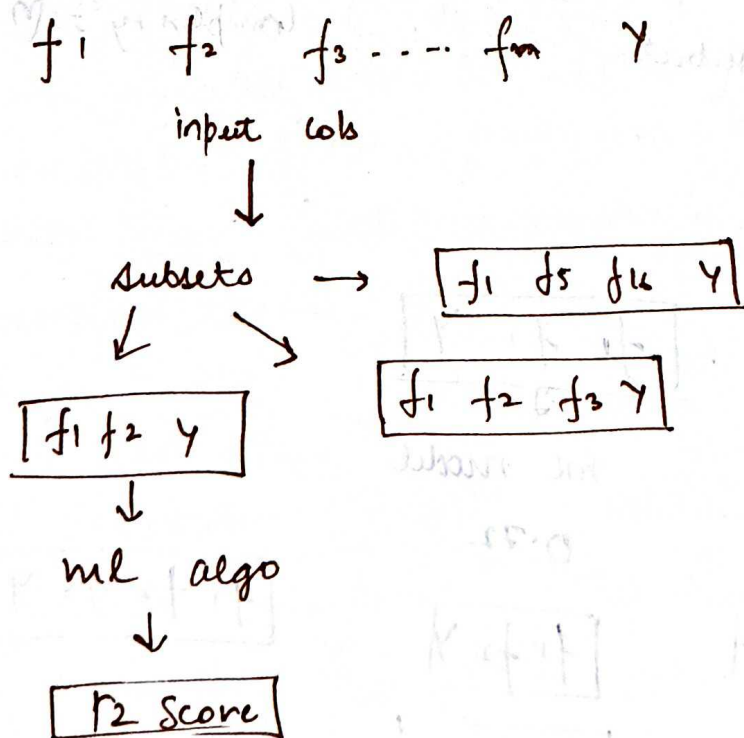 f1 f2 f3 ..... fm Y
input cols
subsets → f1 f5 f16 Y
f1 f2 f3 Y
f1 f2 Y
ml algo
r2 score